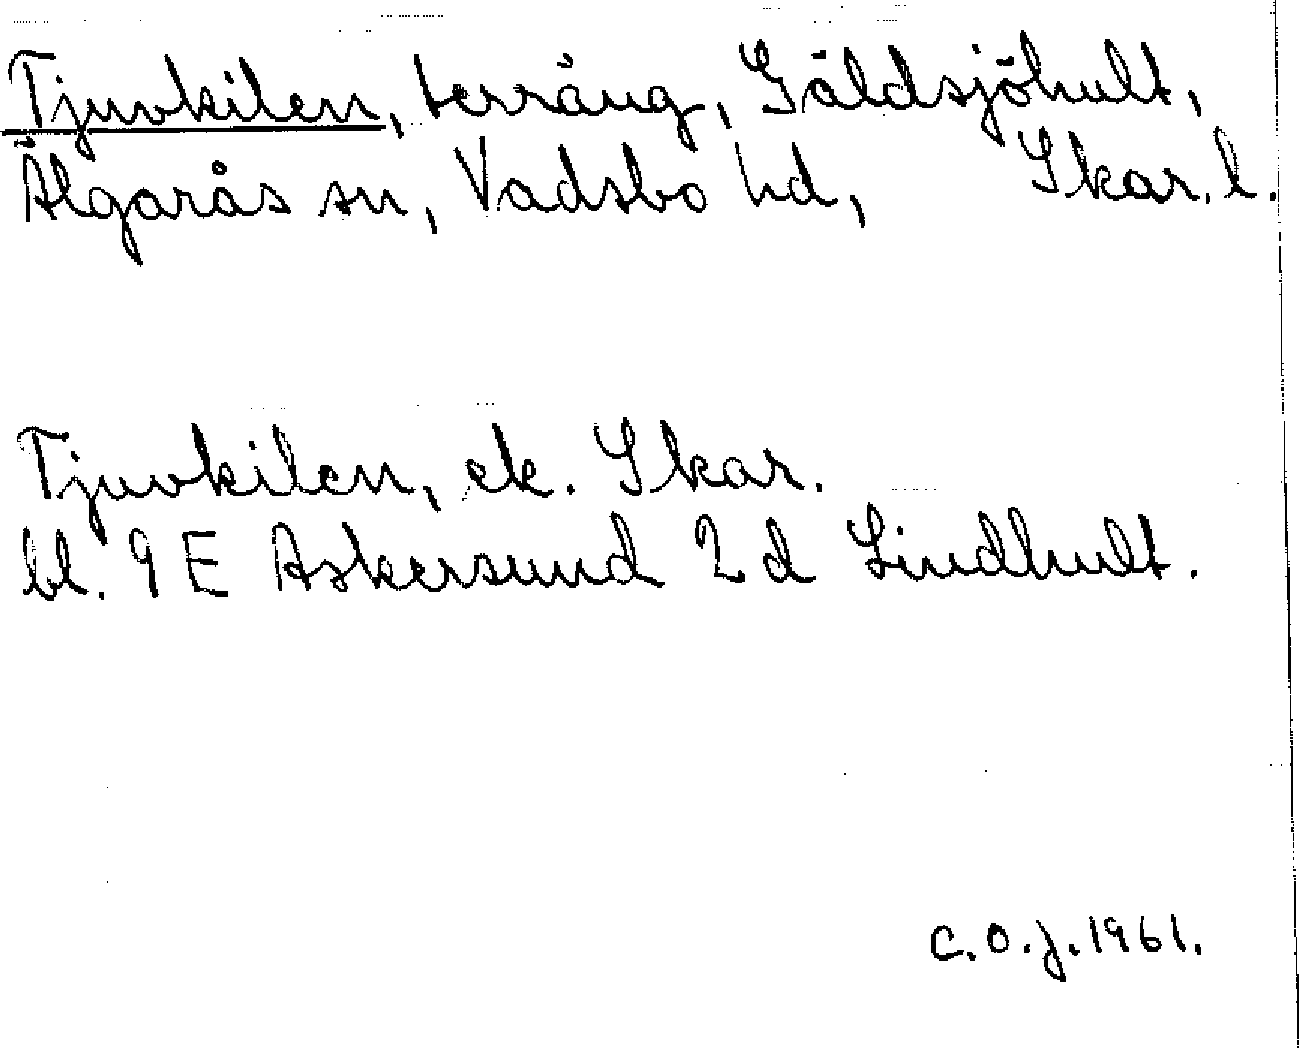 Tjuvkilen, terräng, Gäldsjöhult,
Älgarås sn, Vadsbo hd, Skar. l.
Tjuvkilen, ek. Skar.
bl. 9 E Askersund 2 d Lindhult.
C.O.J. 1961.